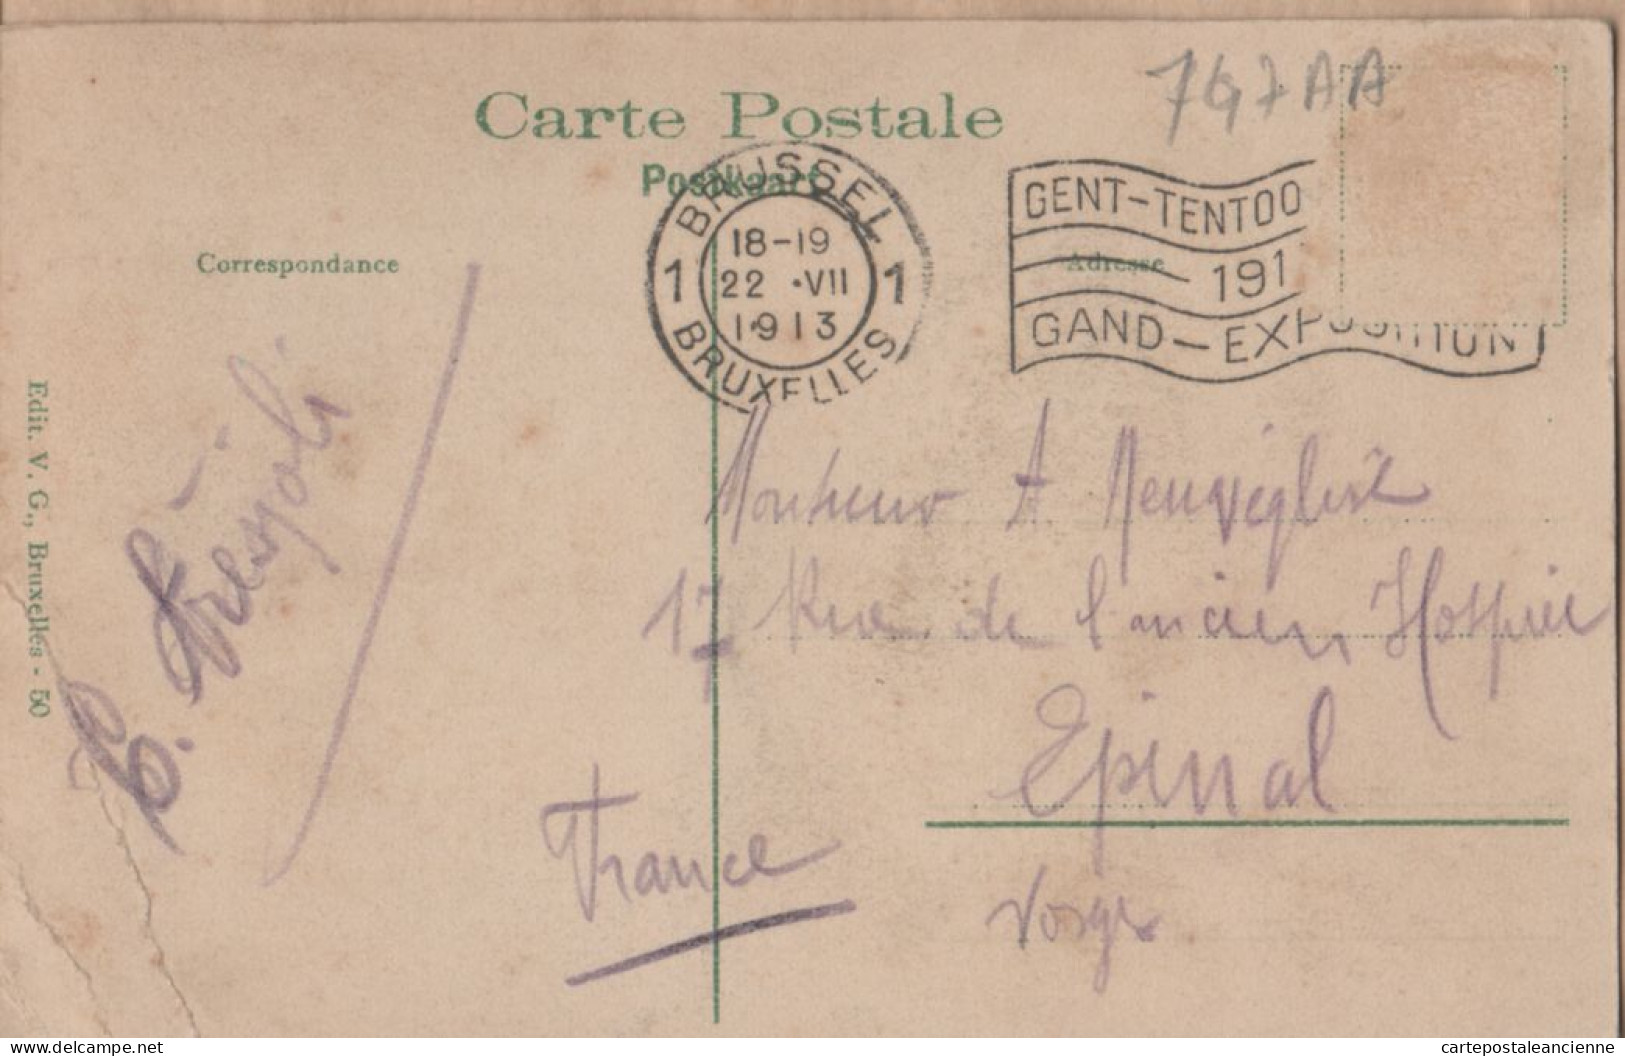 747AA
Carte Postale
Postkaart
BRUSSEL
1 18-19 1
22 ·VII
1913
BRUXELLES
GENT-TENTOO
191
GAND-EXPOSITION
Correspondance
Adresse
Edit. V. G., Bruxelles - 50
Monsieur A
17 Rue de l'ancien Hospice
Epinal
France
Vosges
delcampe.net
cartepostaleancienne